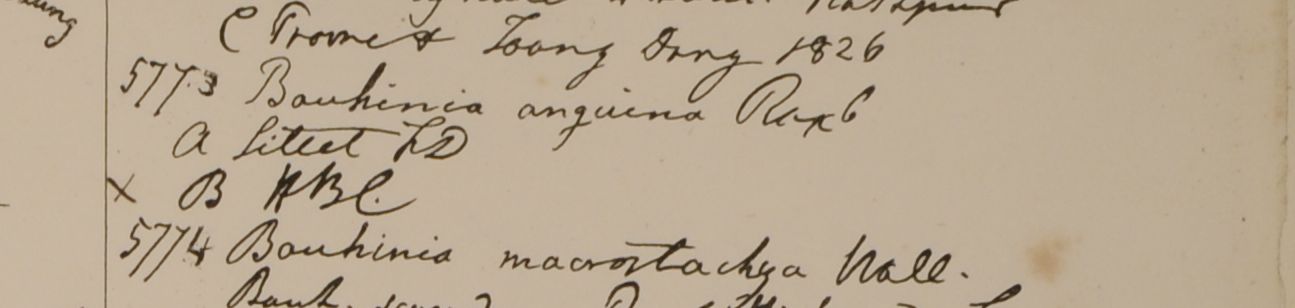 C Prome & Toong Dong 1826
5773 Bauhinia anguina Roxb
A Siteet HD
x B HBC.
5774 Bauhinia macrostachya Wall.
Bauh.